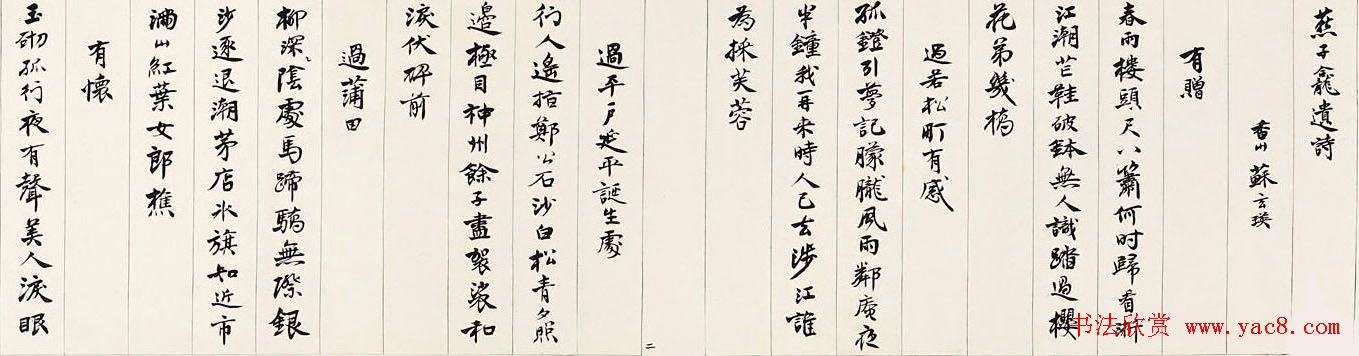 燕子龕遺詩
香山 蘇玄瑛
有贈
春雨樓頭尺八簫何时歸看浙
江潮芒鞋破鉢無人識踏過櫻
花弟幾橋
過若松町有感
孤鐙引夢記朦朧風雨鄰庵夜
半鐘我再来時人已去涉江誰
為採芙蓉
過平戶延平誕生處
行人遙指鄭公石沙白松青夕照
邊極目神州餘子盡袈裟和
淚伏碑前
過蒲田
柳深陰處馬蹄驕無際銀
沙逐退潮茅店冰旗知近市
滿山紅葉女郎樵
有懷
玉砌孤行夜有聲美人淚眼
二
书法欣赏 www.yac8.com